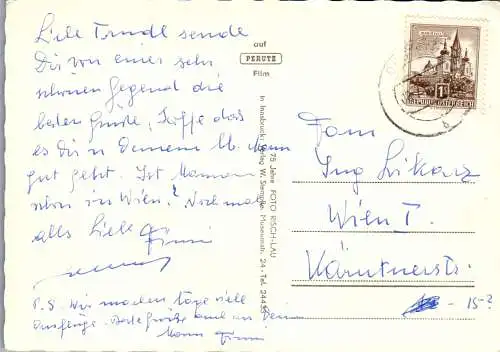 Liebe Trudl sende
Dir von einer sehr
schönen Gegend die
besten Grüße, hoffe das
es Dir u Deinem Mann
gut geht. Ist Maman
schon in Wien? Nochmals
alls Liebe
P.S. Wir machen tage viele
Ausflüge. Beste Grüße auch an Deinen
Mann
auf
PERUTZ
Film
75 Jahre FOTO RISCH-LAU
In Innsbruck: Verlag W. Stempfle, Museumstr. 24 - Tel. 244
REPUBLIK ÖSTERREICH
Fam
Ing
Wien I.
Kärntnerstr.
- 15-?